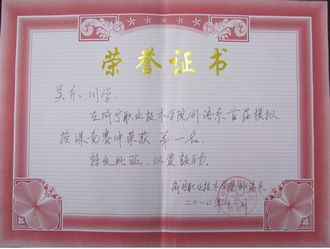 荣誉证书
吴东同学:
在咸宁职业技术学院外语系首届模拟
授课竞赛中荣获 第一名
特发此证,以资鼓励
咸宁职业技术学院外语系
二〇一〇年